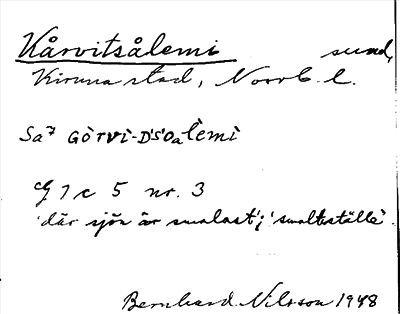 Kårvitsålemi sund,
Kiruna stad, Norrb. l.
Sa7 GÒrvi-DSOalèmì
CJ 1 c 5 nr. 3
'där sjön är smalast'; 'smaltställe'.
Bernhard Nilsson 1948